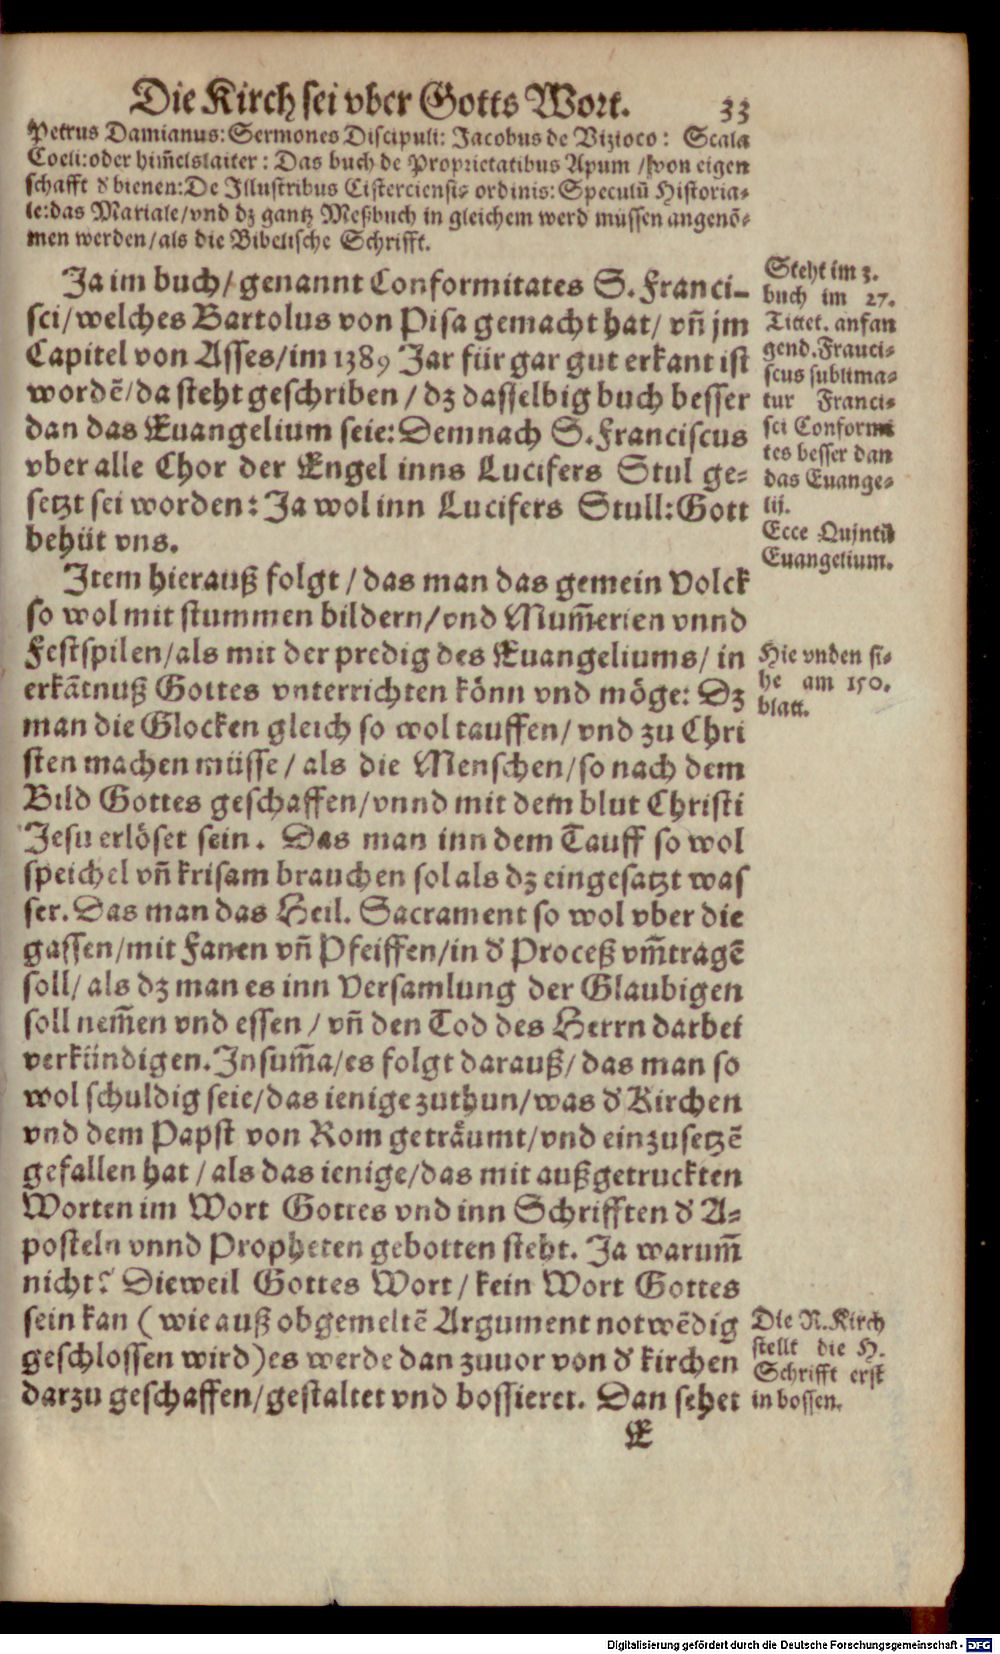 Die Kirch sei vber Gotts Wort. 33
Petrus Damianus: Sermones Discipuli: Jacobus de Vizioco: Scala
Coeli: oder him̃elslaiter: Das buch de Proprietatibus Apum / von eigen
schafft d' bienen: De Illustribus Cisterciensi- ordinis: Speculũ Historia-
le: das Mariale / vnd dz gantz Meßbuch in gleichem werd müssen angenõ-
men werden / als die Bibelische Schrifft.
Ja im buch / genannt Conformitates S. Franci-
sci / welches Bartolus von Pisa gemacht hat / vñ jm
Capitel von Asses / im 1389 Jar für gar gut erkant ist
wordẽ / da steht geschriben / dz dasselbig buch besser
dan das Euangelium seie: Demnach S. Franciscus
vber alle Chor der Engel inns Lucifers Stul ge-
setzt sei worden: Ja wol inn Lucifers Stull: Gott
behüt vns.
Steht im 3.
buch im 27.
Tittet. anfan
gend. Franci-
scus sublima-
tur Franci-
sci Conformi
tes besser dan
das Euange-
lij.
Ecce Quintũ
Euangelium.
Item hierauß folgt / das man das gemein Volck
so wol mit stummen bildern / vnd Mum̃erien vnnd
Festspilen / als mit der predig des Euangeliums / in
erkãtnuß Gottes vnterrichten könn vnd möge: Dz
man die Glocken gleich so wol tauffen / vnd zu Chri
sten machen müsse / als die Menschen / so nach dem
Bild Gottes geschaffen / vnnd mit dem blut Christi
Jesu erlöset sein. Das man inn dem Tauff so wol
speichel vñ krisam brauchen sol als dz eingesatzt was
ser. Das man das Heil. Sacrament so wol vber die
gassen / mit Fanen vñ Pfeiffen / in d' Proceß vm̃tragẽ
soll / als dz man es inn Versamlung der Glaubigen
soll nem̃en vnd essen / vñ den Tod des Herrn darbei
verkündigen. In sum̃a / es folgt darauß / das man so
wol schuldig seie / das ienige zuthun / was d' Kirchen
vnd dem Papst von Rom geträumt / vnd einzusetzẽ
gefallen hat / als das ienige / das mit außgetruckten
Worten im Wort Gottes vnd inn Schrifften d' A-
posteln vnnd Propheten gebotten steht. Ja warum̃
nicht? Dieweil Gottes Wort / kein Wort Gottes
sein kan ( wie auß obgemeltẽ Argument notwẽdig
geschlossen wird ) es werde dan zuuor von d' kirchen
darzu geschaffen / gestaltet vnd bossieret. Dan sehet
Hie vnden si-
he am 150.
blatt.
Die R. Kirch
stellt die H.
Schrifft erst
in bossen.
E
Digitalisierung gefördert durch die Deutsche Forschungsgemeinschaft - DFG